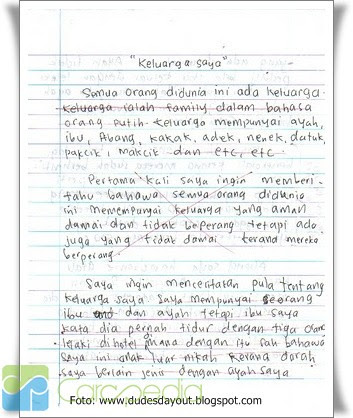 "Keluarga saya"
Semua orang didunia ini ada keluarga.
Keluarga ialah family dalam bahasa
orang putih. Keluarga mempunyai ayah,
ibu, Abang, kakak, adek, nenek, datuk,
pakcik, Makcik dan etc, etc.
Pertama kali saya ingin memberi-
tahu bahawa semua orang didunia
ini memempunyai keluarga yang aman
damai dan tidak beperang tetapi ada
juga yang tidak damai kerana mereka
berperang.
Saya ingin menceritakan pula tentang
keluarga saya. Saya mempunyai seorang
ibu dan ayah tetapi ibu saya
kata dia pernah tidur dengan tiga orang
lelaki di hotel mana dengan itu sah bahawa
saya ini anak luar nikah kerana darah
saya berlain jenis dengan ayah saya
Carcpedia
Foto: www.dudesdayout.blogspot.com